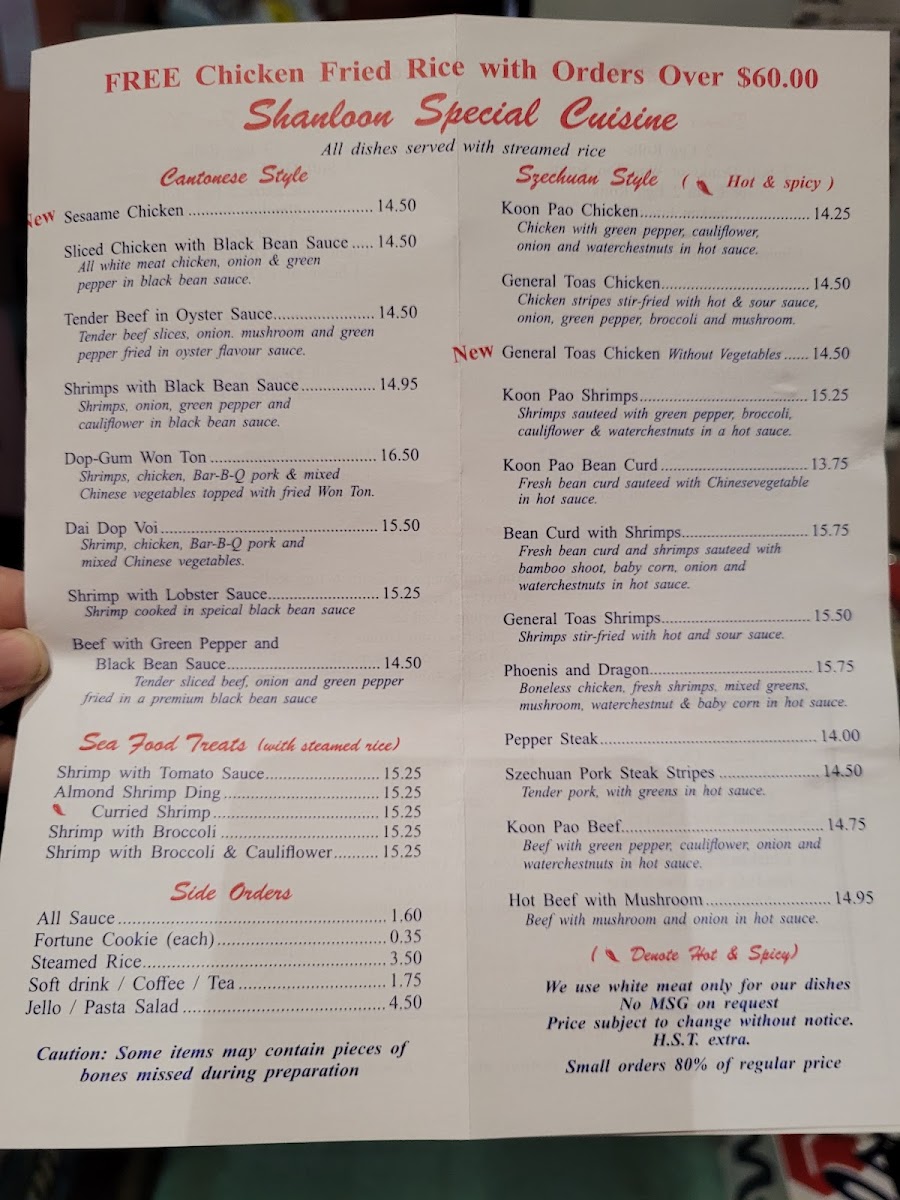 FREE Chicken Fried Rice with Orders Over $60.00
Shanloon Special Cuisine
All dishes served with streamed rice
Cantonese Style
New Sesaame Chicken ........................................ 14.50
Sliced Chicken with Black Bean Sauce ..... 14.50
All white meat chicken, onion & green
pepper in black bean sauce.
Tender Beef in Oyster Sauce....................... 14.50
Tender beef slices, onion. mushroom and green
pepper fried in oyster flavour sauce.
Shrimps with Black Bean Sauce ................ 14.95
Shrimps, onion, green pepper and
cauliflower in black bean sauce.
Dop-Gum Won Ton ................................... 16.50
Shrimps, chicken, Bar-B-Q pork & mixed
Chinese vegetables topped with fried Won Ton.
Dai Dop Voi ............................................... 15.50
Shrimp, chicken, Bar-B-Q pork and
mixed Chinese vegetables.
Shrimp with Lobster Sauce........................ 15.25
Shrimp cooked in speical black bean sauce
Beef with Green Pepper and
Black Bean Sauce................................. 14.50
Tender sliced beef, onion and green pepper
fried in a premium black bean sauce
Sea Food Treats (with steamed rice)
Shrimp with Tomato Sauce......................... 15.25
Almond Shrimp Ding .................................. 15.25
Curried Shrimp .................................... 15.25
Shrimp with Broccoli .................................. 15.25
Shrimp with Broccoli & Cauliflower.......... 15.25
Side Orders
All Sauce ......................................................... 1.60
Fortune Cookie (each) .................................... 0.35
Steamed Rice.................................................... 3.50
Soft drink / Coffee / Tea ................................ 1.75
Jello / Pasta Salad ........................................... 4.50
Caution: Some items may contain pieces of
bones missed during preparation
Szechuan Style ( Hot & spicy )
Koon Pao Chicken..................................... 14.25
Chicken with green pepper, cauliflower,
onion and waterchestnuts in hot sauce.
General Toas Chicken................................ 14.50
Chicken stripes stir-fried with hot & sour sauce,
onion, green pepper, broccoli and mushroom.
New General Toas Chicken Without Vegetables ...... 14.50
Koon Pao Shrimps..................................... 15.25
Shrimps sauteed with green pepper, broccoli,
cauliflower & waterchestnuts in a hot sauce.
Koon Pao Bean Curd ................................ 13.75
Fresh bean curd sauteed with Chinesevegetable
in hot sauce.
Bean Curd with Shrimps............................ 15.75
Fresh bean curd and shrimps sauteed with
bamboo shoot, baby corn, onion and
waterchestnuts in hot sauce.
General Toas Shrimps................................ 15.50
Shrimps stir-fried with hot and sour sauce.
Phoenis and Dragon................................... 15.75
Boneless chicken, fresh shrimps, mixed greens,
mushroom, waterchestnut & baby corn in hot sauce.
Pepper Steak............................................... 14.00
Szechuan Pork Steak Stripes ...................... 14.50
Tender pork, with greens in hot sauce.
Koon Pao Beef............................................ 14.75
Beef with green pepper, cauliflower, onion and
waterchestnuts in hot sauce.
Hot Beef with Mushroom ........................... 14.95
Beef with mushroom and onion in hot sauce.
( Denote Hot & Spicy)
We use white meat only for our dishes
No MSG on request
Price subject to change without notice.
H.S.T. extra.
Small orders 80% of regular price